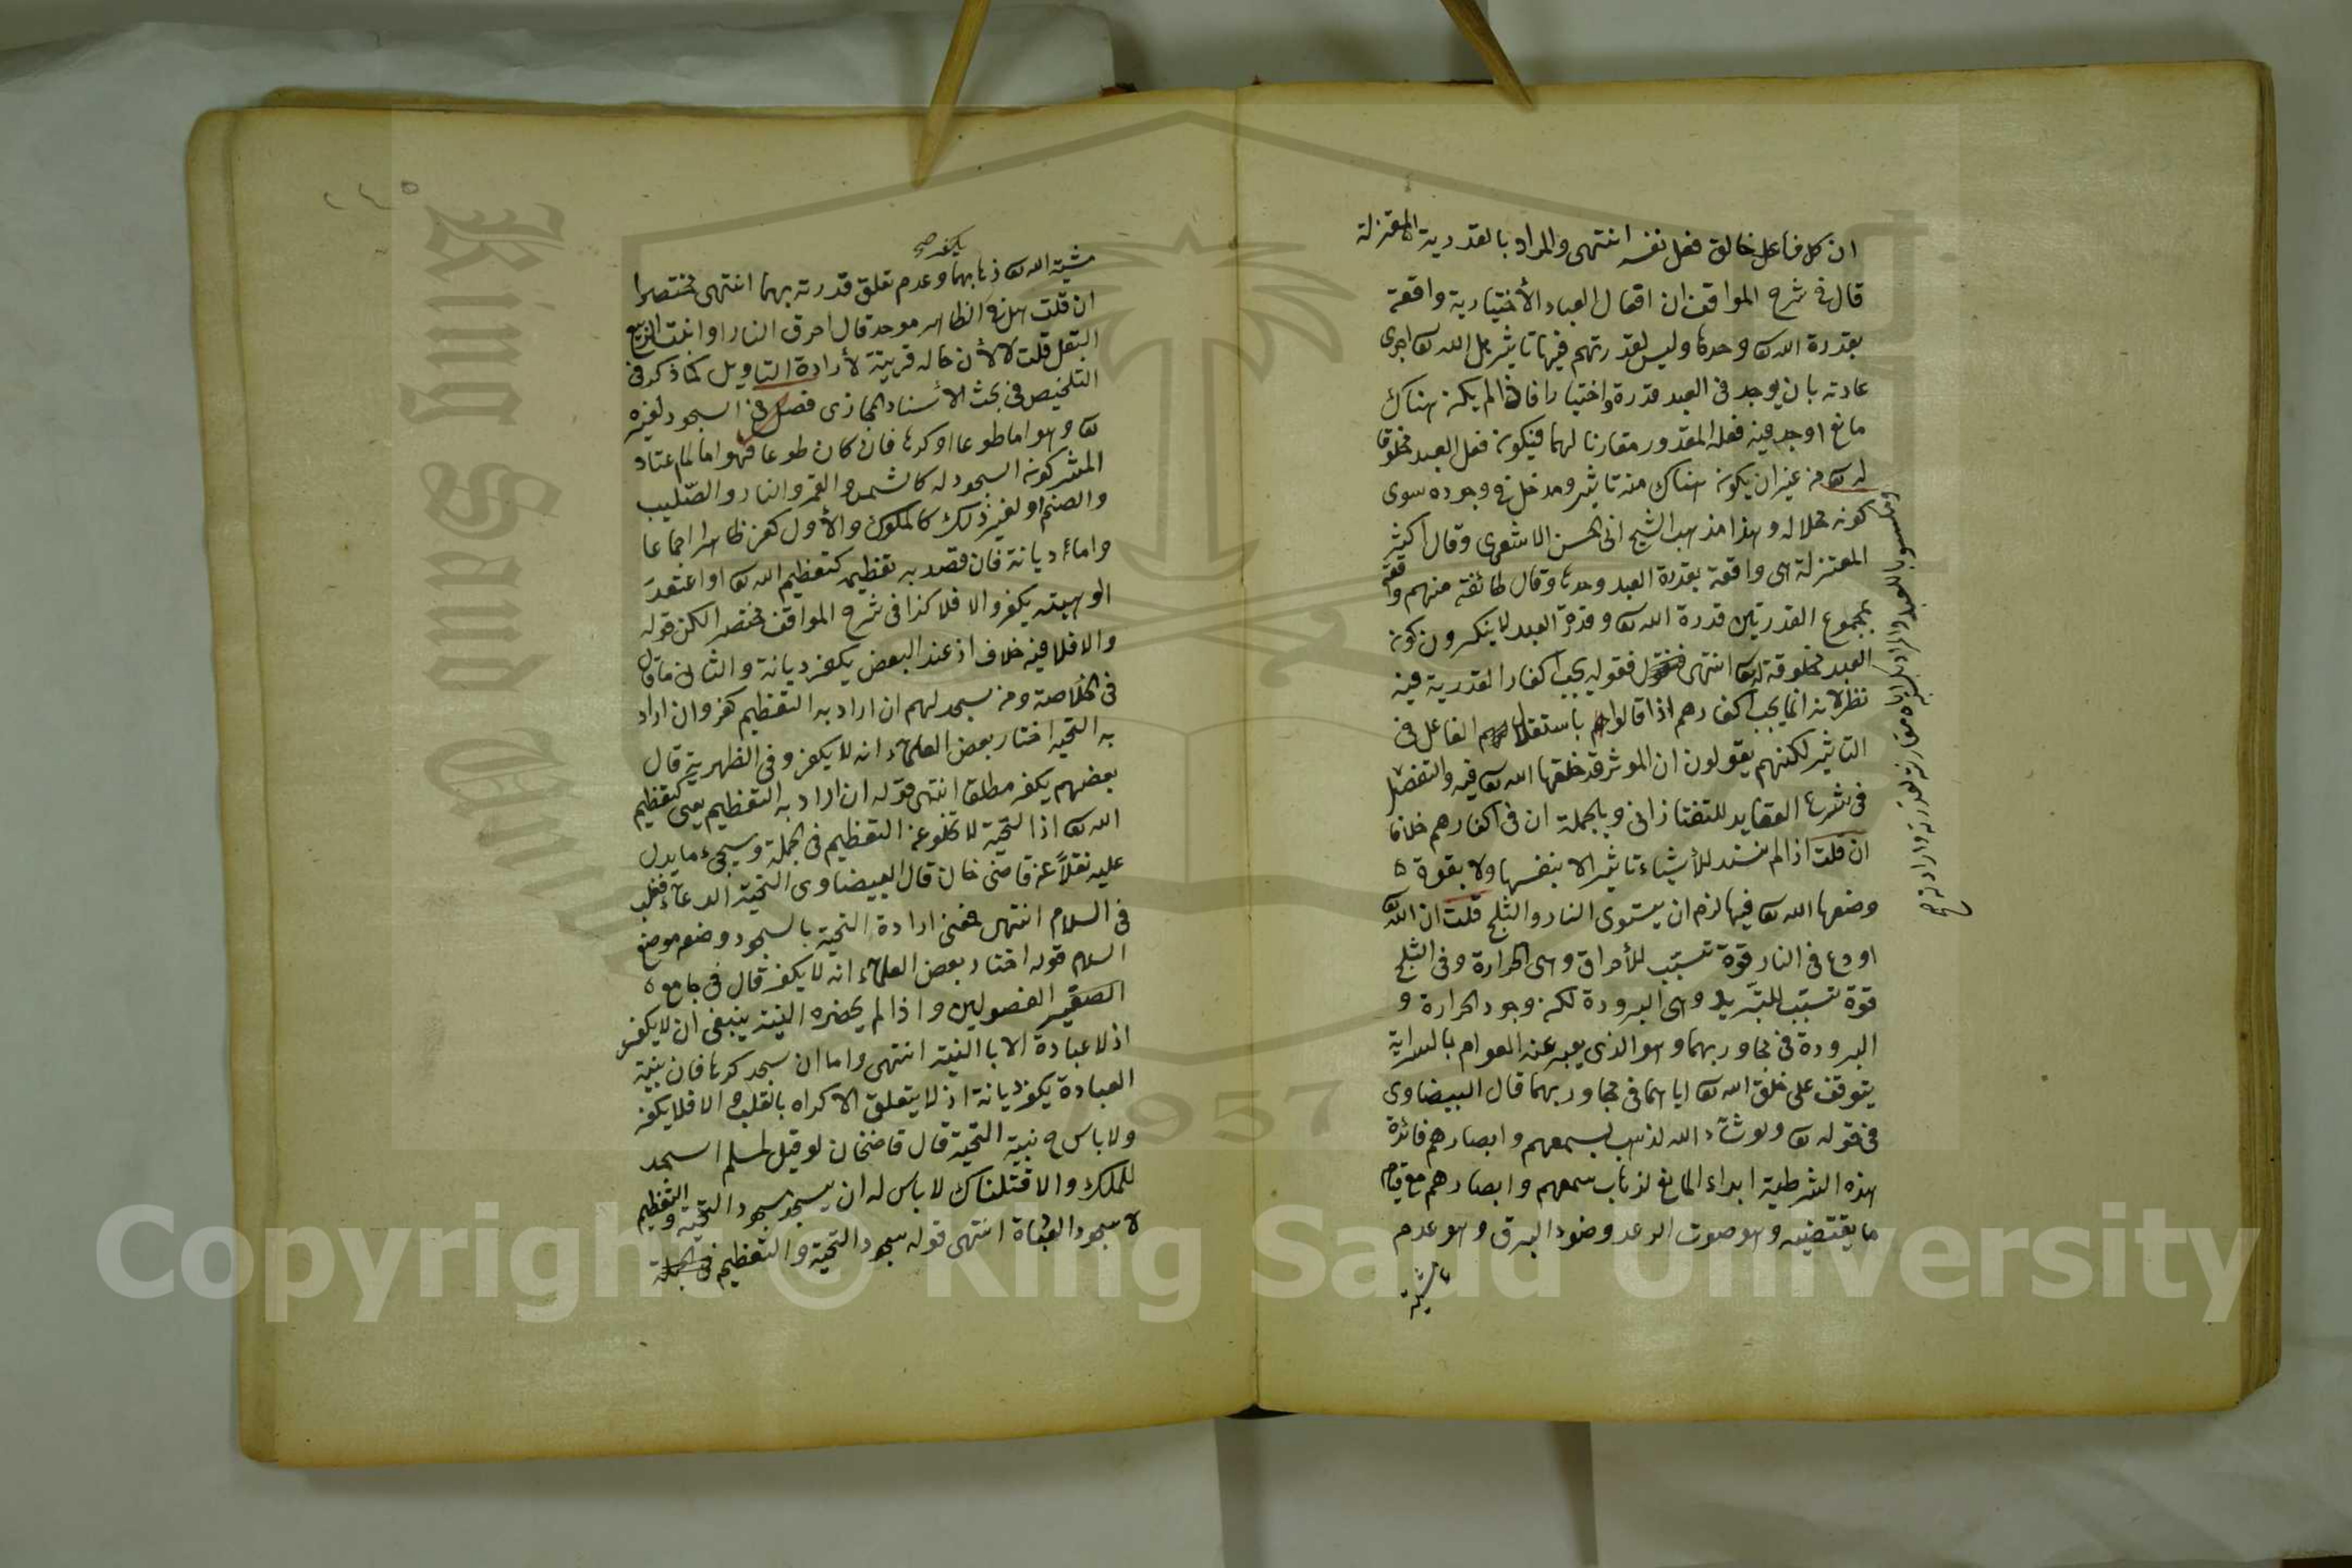 ان كل فاعل خالق فعل نفسه انتهى والمراد بالقدرية المعتزلة
قال في شرح المواقف ان افعال العباد الأختيارية واقعة
بقدرة الله تع وحدها وليس لقدرتهم فيها تاثير بل الله تع اجرى
عادته بان يوجد في العبد قدرة واختيارا فاذا لم يكن هناك
مانع اوجد فيه فعله المقدور مقارنا لهما فيكون فعل العبد مخلوقا
له تع من غير ان يكون هناك منه تاثير ومدخل في وجوده سوى
كونه محلا له وهذا مذهب الشيخ ابى الحسن الاشعرى وقال اكثر
المعتزلة هى واقعة بقدرة العبد وحدها وقال طائفة منهم واقعة
بمجموع القدرتين قدرة الله تع وقدرة العبد لا ينكرون كون
العبد مخلوقة له تع انتهى فقوله يجب اكفار القدرية فيه
نظر لانه انما يجب اكفارهم اذا قالوا باستقلال الفاعل في
التاثير لكنهم يقولون ان الموثر قد خلقها الله تع فيه والتفصيل
في شرح العقايد للتفتازانى وبالجملة ان في اكفارهم خلافا
ان قلت اذا لم نسند للأشياء تاثيرا لا بنفسها ولا بقوة
وضعها الله تع فيها لزم ان يستوى النار والثلج قلت ان الله تع
اودع في النار قوة تسبّب للأحراق وهى الحرارة وفى الثلج
قوة تسبّب للتبريد وهى البرودة لكن وجود الحرارة و
البرودة في مجاوربهما وهو الذى يعبر عنه العوام بالسراية
يتوقف على خلق الله تع اياهما في مجاوربهما قال البيضاوى
في قوله تع ولو شاء الله لذهب بسمعهم وابصارهم فائدة
هذه الشرطية ابداء المانع لذهاب سمعهم وابصارهم مع قيام
ما يقتضيه وهو صوت الرعد وضوء البرق وهو عدم
مشية
والمراد بكسبه اياه مقارنته لقدرته وارادته صح
يكفر صح
مشية الله تع ذهابهما وعدم تعلق قدرته بهما انتهى مختصرا
ان قلت هل في الظاهر موحد قال احرق النار او انبت الربيع
البقل قلت لا لأن حاله قرينة لأرادة التاويل كما ذكر في
التلخيص في بحث الأسناد المجازى فصل في السجود لغيره
تع وهو اما طوعا او كرها فان كان طوعا فهو اما لما اعتاد
المشركون السجود له كالشمس والقمر والنار والصّليب
والصنم او لغير ذلك كالملوك والأول كفر ظاهرا اجماعا
واما ديانة فان قصد به تعظيمه كتعظيم الله تع او اعتقد
الوهيته يكفر والا فلا كذا في شرح المواقف مختصرا لكن قوله
والا فلا فيه خلاف اذ عند البعض يكفر ديانة والثان ما قال
في الخلاصة ومن سجد لهم ان اراد به التعظيم كفر وان اراد
به التحية اختار بعض العلماء انه لا يكفر وفى الظهيرية قال
بعضهم يكفر مطلقا انتهى قوله ان اراد به التعظيم يعنى كتعظيم
الله تع اذ التحية لا تخلو عن التعظيم في الجملة وسيجىء ما يدل
عليه نقلاً عن قاضى خان قال البيضاوى التحية الدعاء فغلب
في السلام انتهى فمعنى ارادة التحية بالسجود وضعه موضع
السلام قوله اختار بعض العلماء انه لا يكفر قال في جامع
الصغير الفصولين واذا لم يحضره النية ينبغى ان لا يكفر
اذ لا عبادة الا بالنية انتهى واما ان سجد كرها فان بنية
العبادة يكفر ديانة اذ لا يتعلق الاكراه بالقلب والا فلا يكفر
ولا باس بنية التحية قال قاضخان لو قيل لمسلم اسجد
للملك والا قتلناك لا باس له ان يسجد سجود التحية والتعظيم
لا سجود العبادة انتهى قوله سجود التحية والتعظيم